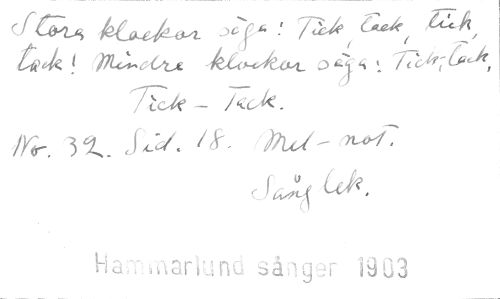 Stora klockor säga: Tick, tack, tick,
tack! Mindre klockor säga: Tick, tack,
Tick – Tack.
No. 32. Sid. 18. Mel-not.
Sånglek.
Hammarlund sånger 1903